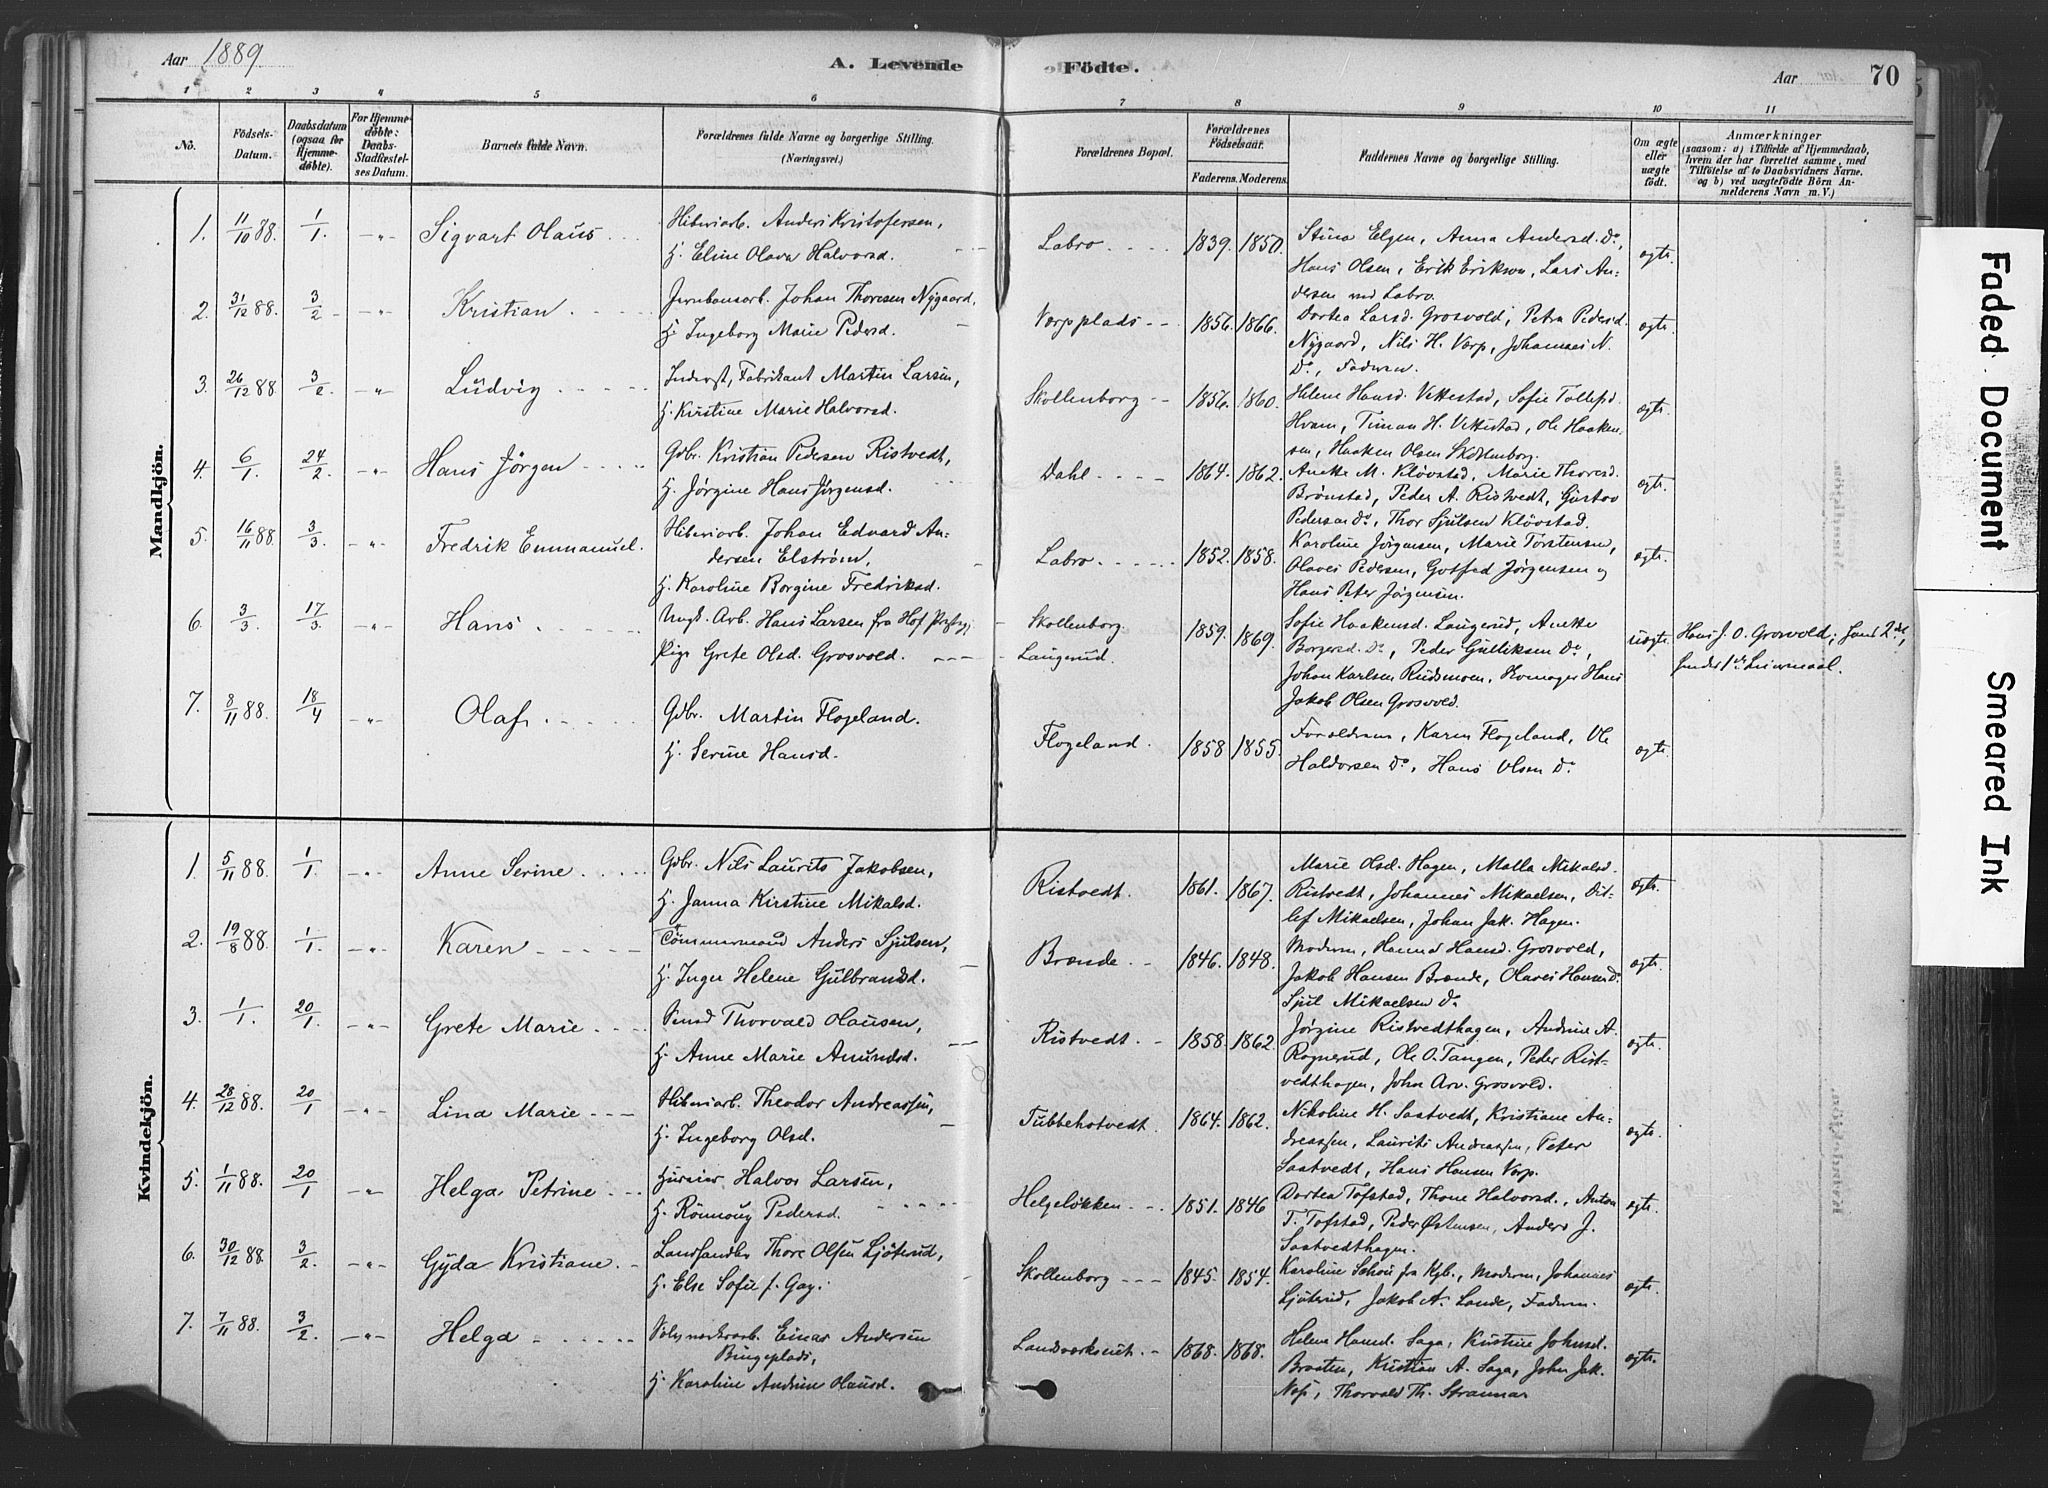 Aar 1889.
A. Levende Födte.
Aar 70
1 2 3 4 5 6 7 8 9 10 11
No.
Födsels-Datum.
Daabsdatum (ogsaa for Hjemme-döbte).
For Hjemme-döbte: Daabs-Stadfæstel-ses Datum.
Barnets fulde Navn.
Forældrenes fulde Navne og borgerlige Stilling.
(Næringsvei.)
Forældrenes Bopæl.
Forældrenes Födselsaar.
Faderens. Moderens.
Faddernes Navne og borgerlige Stilling.
Om ægte eller uægte födt.
Anmærkninger
(saasom: a) i Tilfælde af Hjemmedaab,
hvem der har forrettet samme, med
Tilföielse af to Daabsvidners Navne.
og b) ved uægtefödte Börn An-
melderens Navn m. V.)
Mandkjön.
1. 11/10 88. 1/1 -"- Sigvart Olaus. Anders Kristofersen, Labro 1839. 1850. Stina Elgen, Anna Andersd. Do,
H. Eline Olava Halvorsd. Hans Olsen, Erik Erikson, Lars An- ægte.
dersen ved Labro.
2. 31/12 88. 3/2 -"- Kristian Jernbanearb. Johan Thoresen Nygaard, Værpplads 1856. 1866. Dortea Larsd. Grosvold, Petra Pedersd.
H. Ingeborg Marie Pedersd. Nygaard, Nils H. Værp, Johannes N. ægte.
Do, Faderen.
3. 26/12 88. 3/2 -"- Ludvig Fabrikant Martin Larsen, Skollenborg 1856. 1860. Helene Hansd. Vittestad, Sofie Tollefsd.
H. Kirstine Marie Halvorsd. Hvam, Timan H. Vittestad, Ole Haaken- ægte.
sen, Haaken Olsen Skollenborg.
4. 6/1 24/2 -"- Hans Jörgen Gdbr. Kristian Pedersen Ristvedt, Dahl 1864. 1862. Anette M. Klövstad, Marie Thoresd.
H. Jörgine Hans Jörgensd. Brönstad, Peder A. Ristvedt, Gustav ægte.
Pedersen Do, Thor Sjulsen Klövstad.
5. 16/11 88. 3/3 -"- Fredrik Emmanuel. Johan Edvard An- Labro 1852. 1858. Karoline Jörgensen, Marie Torstensen,
dersen Elström, Olaves Pedersen, Gotfred Jörgensen og ægte.
H. Karoline Borgine Fredriksd. Hans Peter Jörgensen.
6. 3/3 17/3. -"- Hans Ungk. Arb. Hans Larsen fra Hof Skollenborg 1859. 1869. Sofie Haakensd. Laugerud, Anette uægte. Hans J. O. Grosvold; hans 2det,
Pige Grete Olsd. Grosvold. Laugerud. Borgersd. Do, Peder Gulliksen Do, hendes 1ste Leiermaal.
Johan Karlsen Rudsmoen, Hans
Jakob Olsen Grosvold.
7. 8/11 88. 18/4 -"- Olaf Gdbr. Martin Flogeland. Flogeland. 1858 1855. Forældrene, Karen Flogeland, Ole
H. Serine Hansd. Haldorsen Do, Hans Olsen Do ægte.
Kvindekjön.
1. 5/11 88. 1/1 -"- Anne Serine Gdbr. Nils Laurits Jakobsen, Ristvedt. 1861. 1867. Marie Olsd. Hagen, Malla Mikalsd. ægte.
H. Janna Kirstine Mikalsd. Ristvedt, Johannes Mikaelsen, Dit-
lef Mikaelsen, Johan Jak. Hagen.
2. 19/8 88. 1/1 -"- Karen Tömmermand Anders Sjulsen, Brænde 1846. 1848. Moderen, Hanna Hansd. Grosvold,
H. Inger Helene Gulbrandsd. Jakob Hansen Brænde, Olaves Hansen Do ægte.
Sjul Mikaelsen Do
3. 1/1 20/1 -"- Grete Marie Thorvald Olausen, Ristvedt. 1858. 1862. Jörgine Ristvedthagen, Andrine A.
H. Anne Marie Amundsd. Rognerud, Ole O. Tangen, Peder Rist- ægte.
vedthagen, John Arv. Grosvold.
4. 28/12 88. 20/1 -"- Lina Marie Theodor Andreassen, Tubbehotvedt. 1864. 1862. Nikoline H. Saatvedt, Kristiane An-
H. Ingeborg Olsd. dreassen, Laurits Andreassen, Peter ægte.
Saatvedt, Hans Hansen Værp.
5. 1/11 88. 20/1 -"- Helga Petrine Huseier Halvor Larsen, Helgelökken 1851. 1846 Dortea Tofstad, Thone Halvorsd., Anton
H. Rönnoug Pedersd. T. Tofstad, Peder Östensen, Anders J. ægte.
Saatvedthagen.
6. 30/12 88. 3/2 -"- Gyda Kristiane Landhandler Thore Olsen Ljöterud, Skollenborg 1845. 1854. Karoline Schou fra Kgb., Moderen, Johannes
H. Else Sofie f. Ljöterud, Jakob A. Lande, Faderen. ægte.
7. 7/11 88. 3/2 -"- Helga Einar Andersen Landsverkseiet. 1868. 1868. Helene Hansd. Saga, Kirstine Johnsd.
Bingeplads, Braaten, Kristian A. Saga, John Jak. ægte.
H. Karoline Andrine Olausd. Thorvald Th. Strannar
Faded Document
Smeared Ink